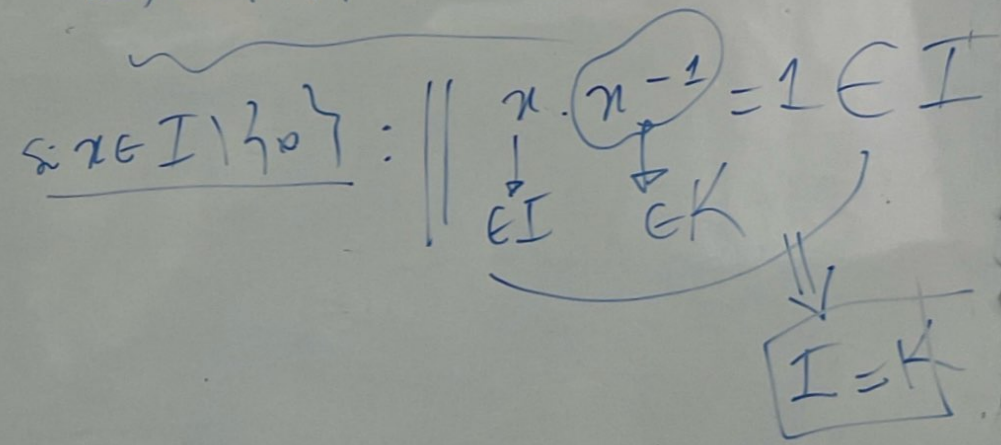 si x ∈ I \ {0} : || x . x⁻¹ = 1 ∈ I
∈ I ∈ K
I = K